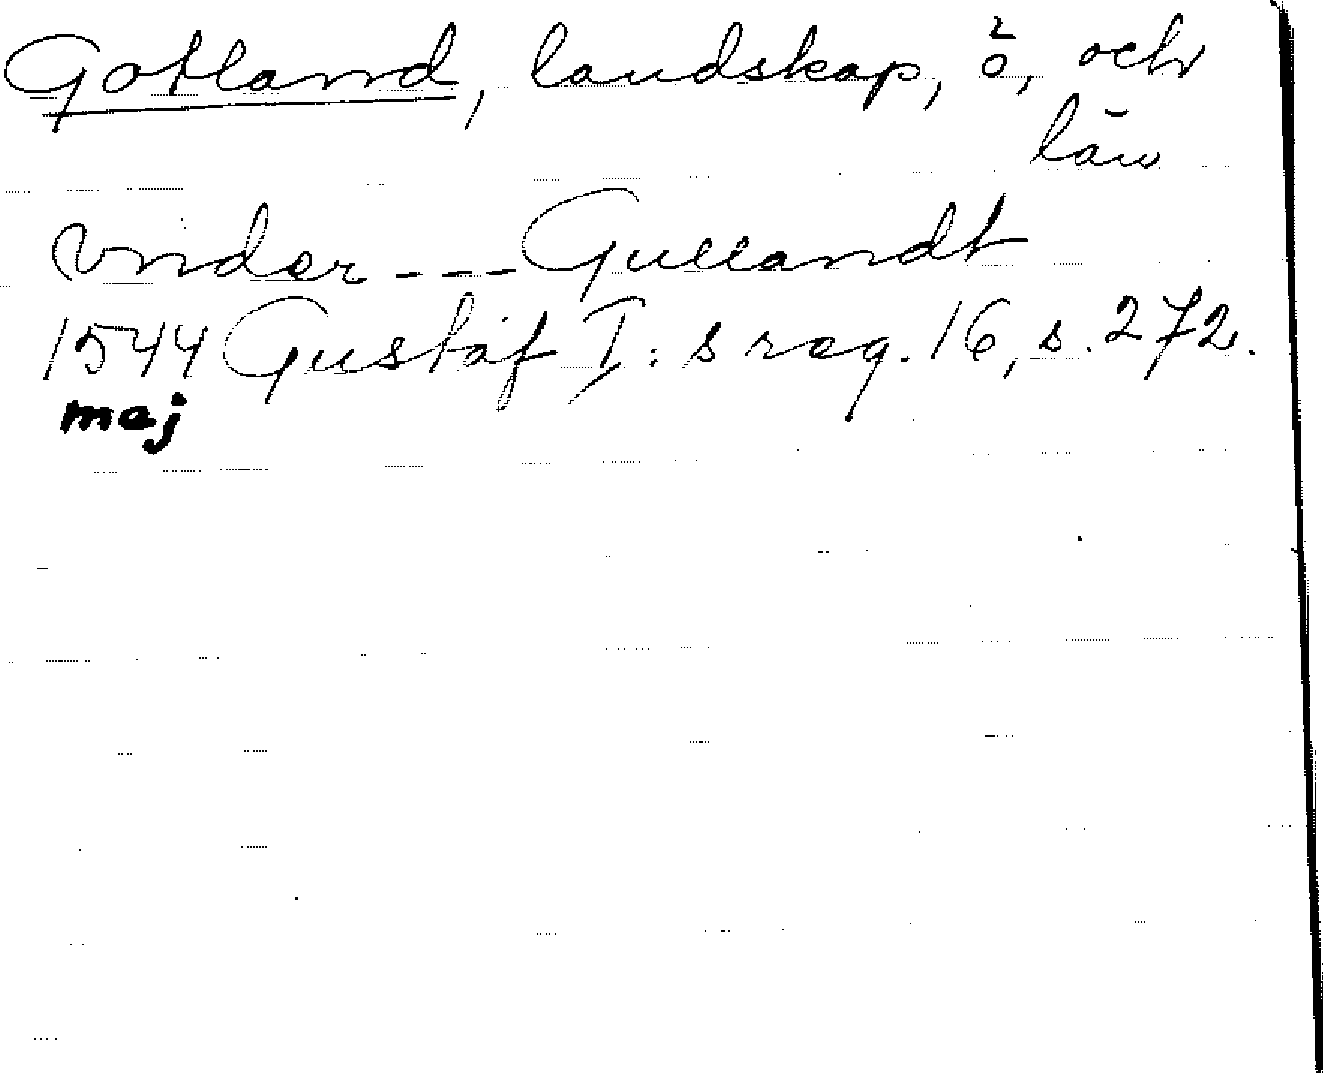 Gotland, landskap, ö, och
län
vnder --- Gullandt
1544 Gustaf I:s reg. 16, s. 272.
maj